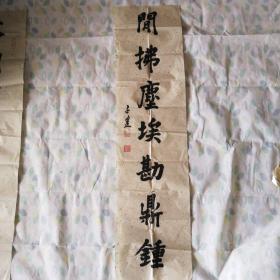 閒拂塵埃勘鼎鍾